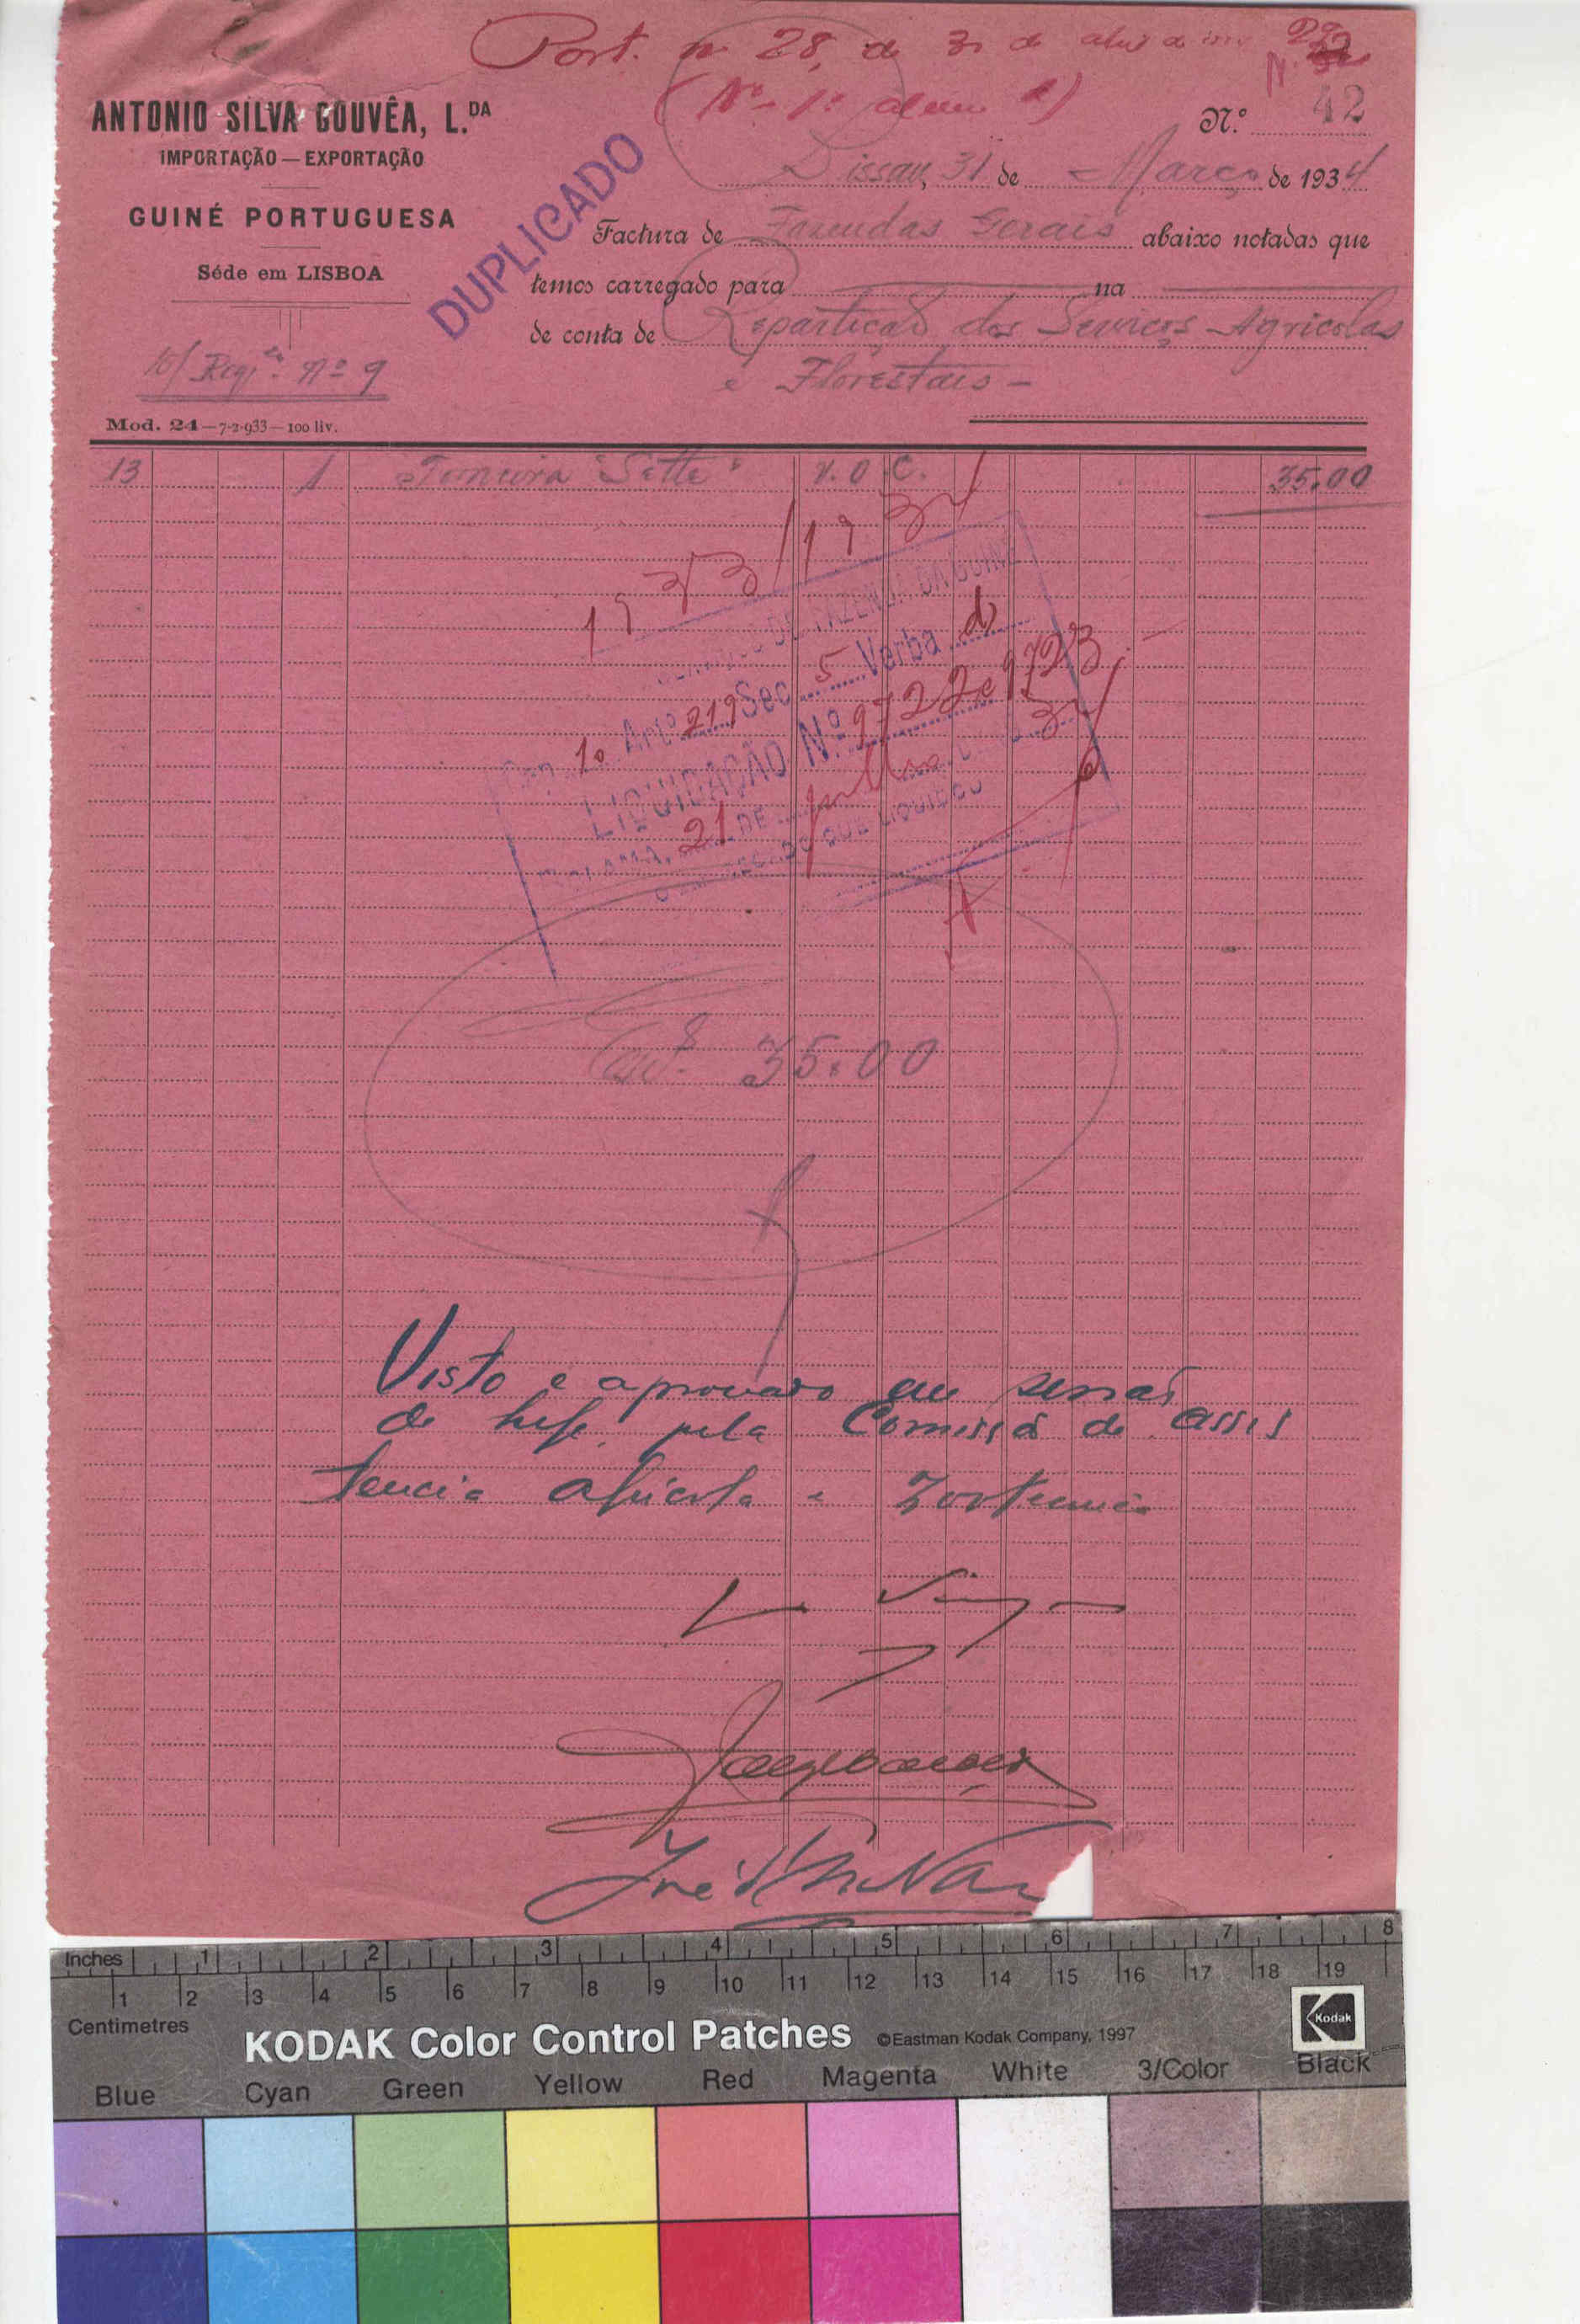 Port. nº 28, de 31 de abril de
(Nº 1º
N. 32
ANTONIO SILVA GOUVÊA, L.DA
IMPORTAÇÃO — EXPORTAÇÃO
GUINÉ PORTUGUESA
Séde em LISBOA
Mod. 24—7-2-933—100 liv.
DUPLICADO
N.º 42
Bissau, 31 de Março de 1934
Factura de Fazendas Gerais abaixo notadas que
temos carregado para na
de conta de Repartição dos Serviços Agricolas
e Florestais —
Reqª. nº 9
13 1 Torneira "Sette" V. O C. 35.00
1933/1934
DE FAZENDA DA GUINÉ
Cap. 1º Artº 219 Sec. 5 Verba d)
LIQUIDAÇÃO N.º 9722 e 9723
BOLAMA, 21 DE julho 34
O EMPREGADO QUE LIQUIDOU
Esc. 35.00
Visto e aprovado em sessão
de hoje pela Comissão de assis
tencia agricola e zootecnica
Inches 1 2 3 4 5 6 7 8
1 2 3 4 5 6 7 8 9 10 11 12 13 14 15 16 17 18 19
Centimetres
KODAK Color Control Patches ©Eastman Kodak Company, 1997
Kodak
Blue Cyan Green Yellow Red Magenta White 3/Color Black